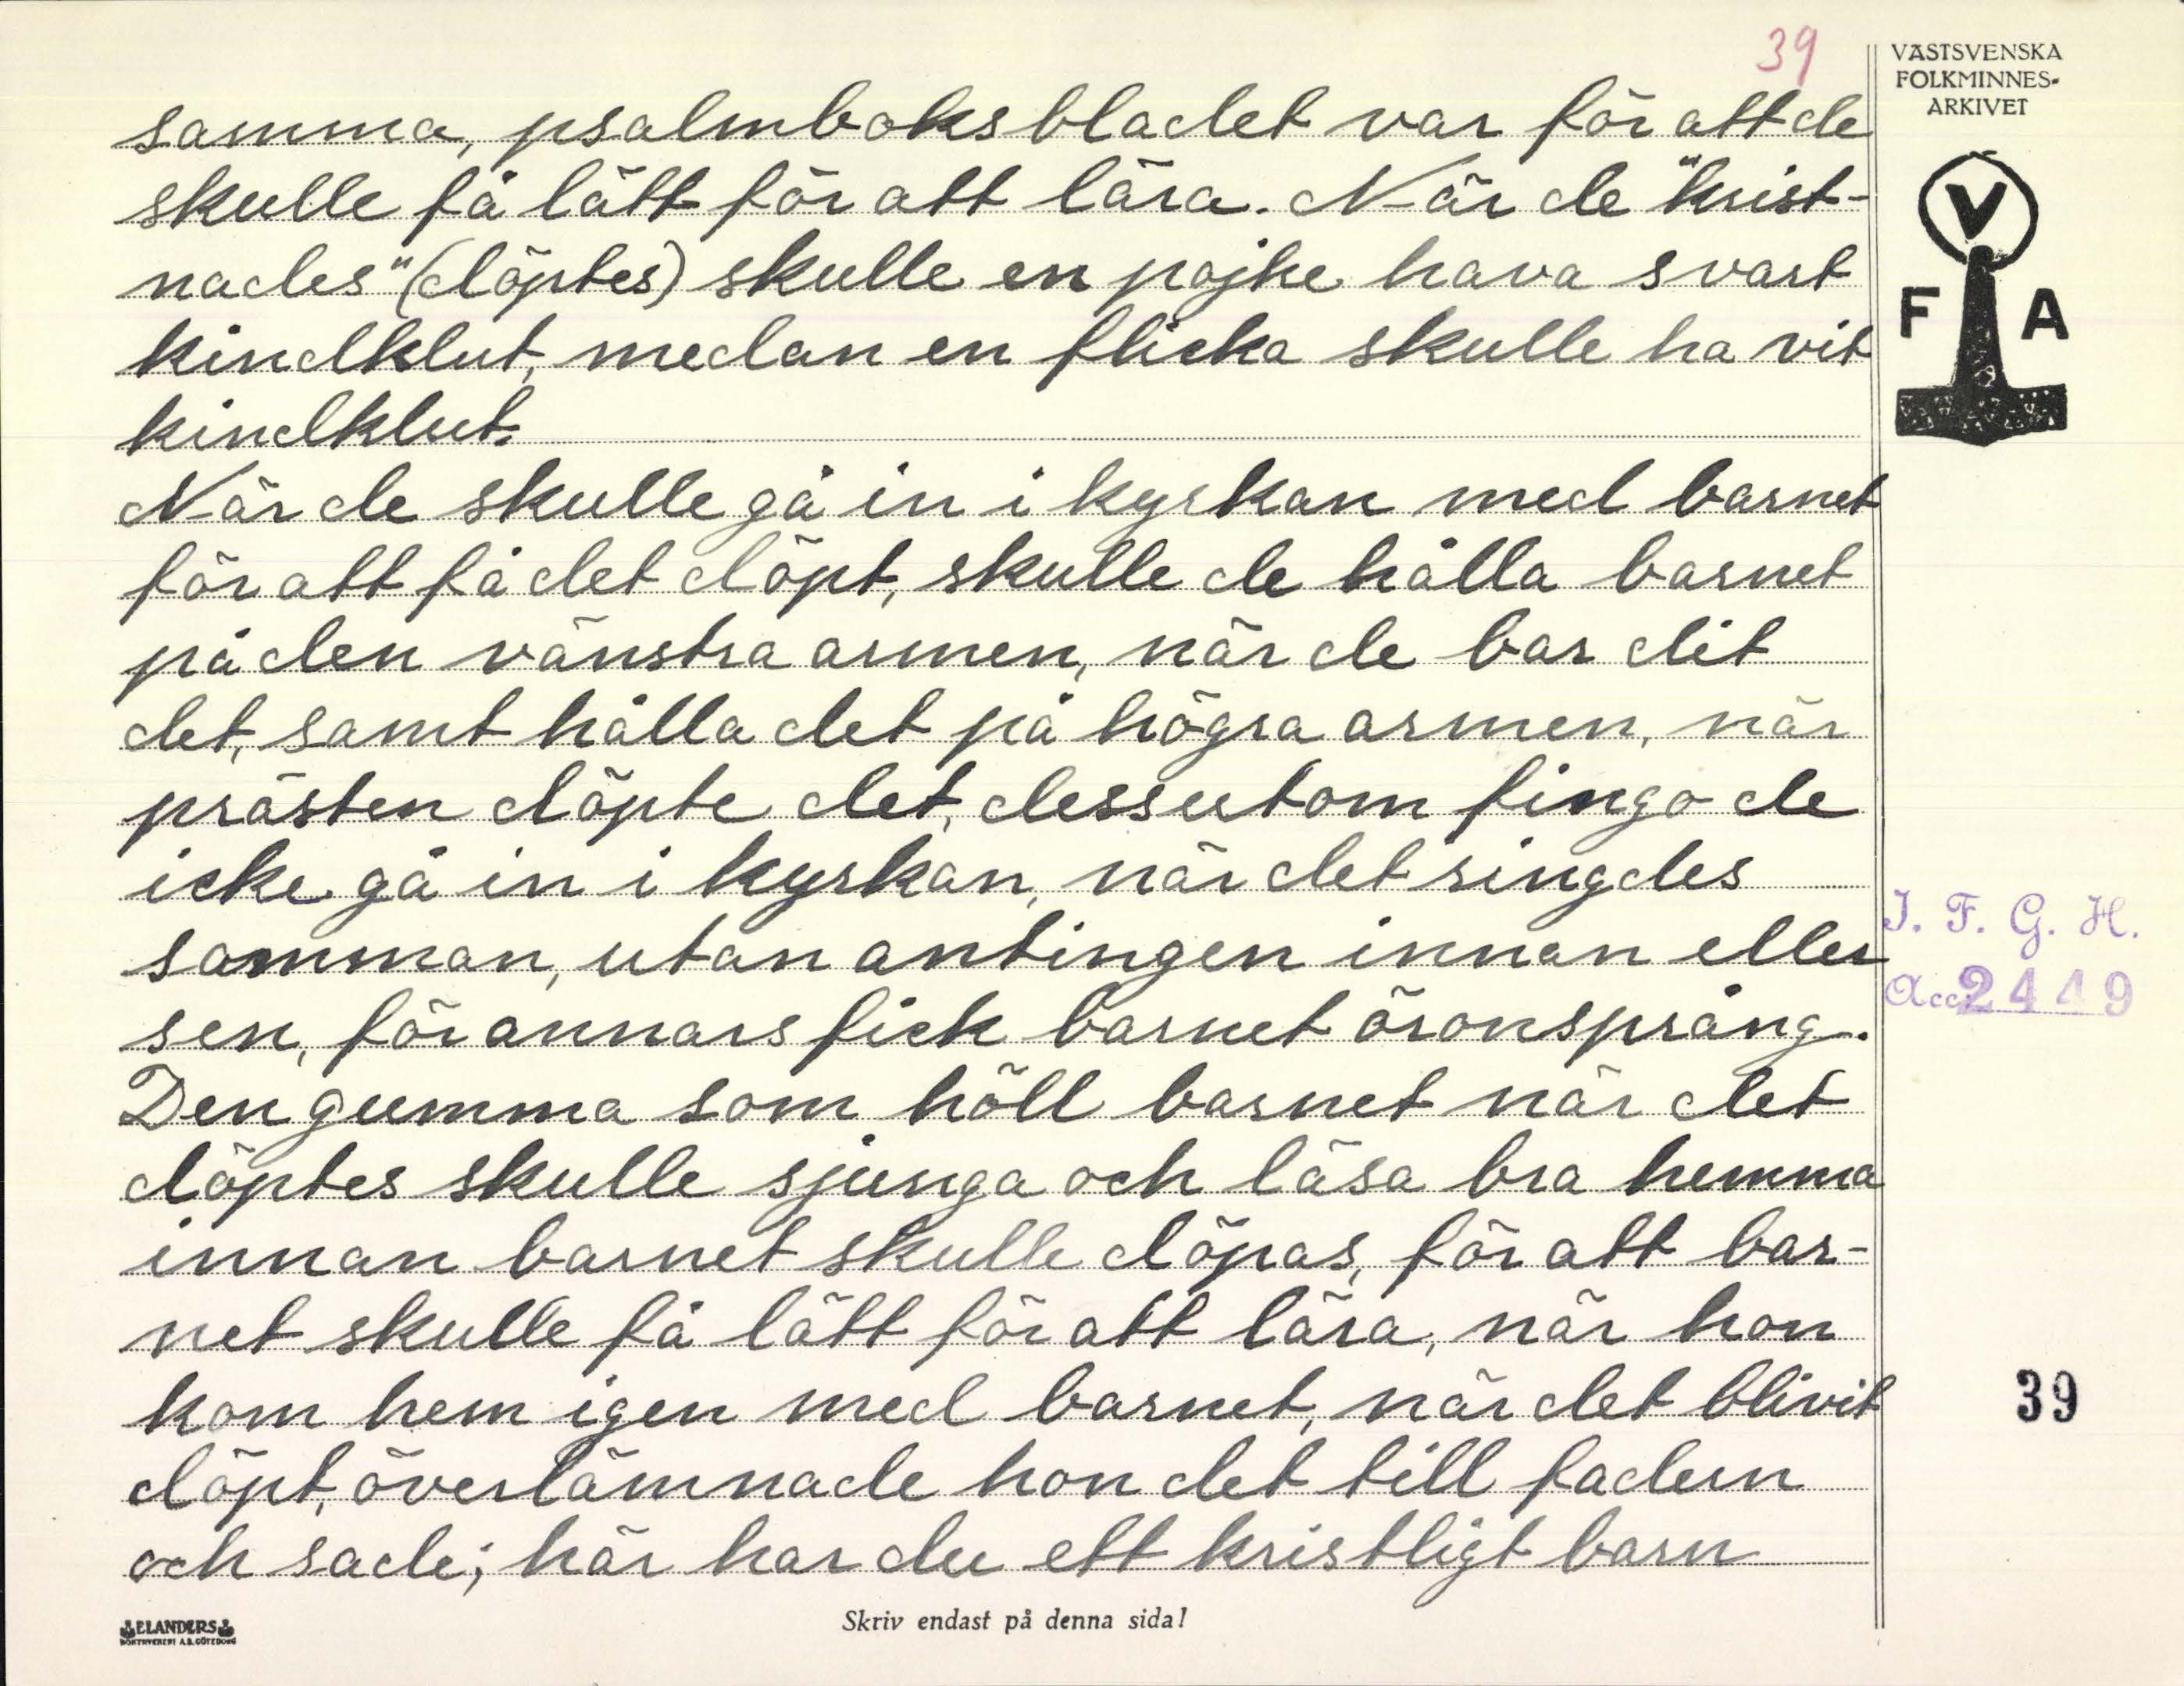 39
VÄSTSVENSKA
FOLKMINNES-
ARKIVET
V
F A
samma, psalmboksbladet var för att de
skulle få lätt för att lära. När de "krist-
nades" (döptes) skulle en pojke hava svart
kindklut, medan en flicka skulle ha vit
kindklut.
När de skulle gå in i kyrkan med barnet
för att få det döpt, skulle de hålla barnet
på den vänstra armen, när de bar dit
det, samt hålla det på högra armen, när
prästen döpte det, dessutom fingo de
icke gå in i kyrkan, när det ringdes
samman, utan antingen innan eller
sen, för annars fick barnet öronspräng.
Den gumma som höll barnet när det
döptes skulle sjunga och läsa bra hemma
innan barnet skulle döpas, för att bar-
net skulle få lätt för att lära, när hon
kom hem igen med barnet, när det blivit
döpt, överlämnade hon det till fadern
och sade; här har du ett kristligt barn
I. F. G. H.
Acc. 2449
39
ELANDERS
BOKTRYCKERI A.B. GÖTEBORG
Skriv endast på denna sida!